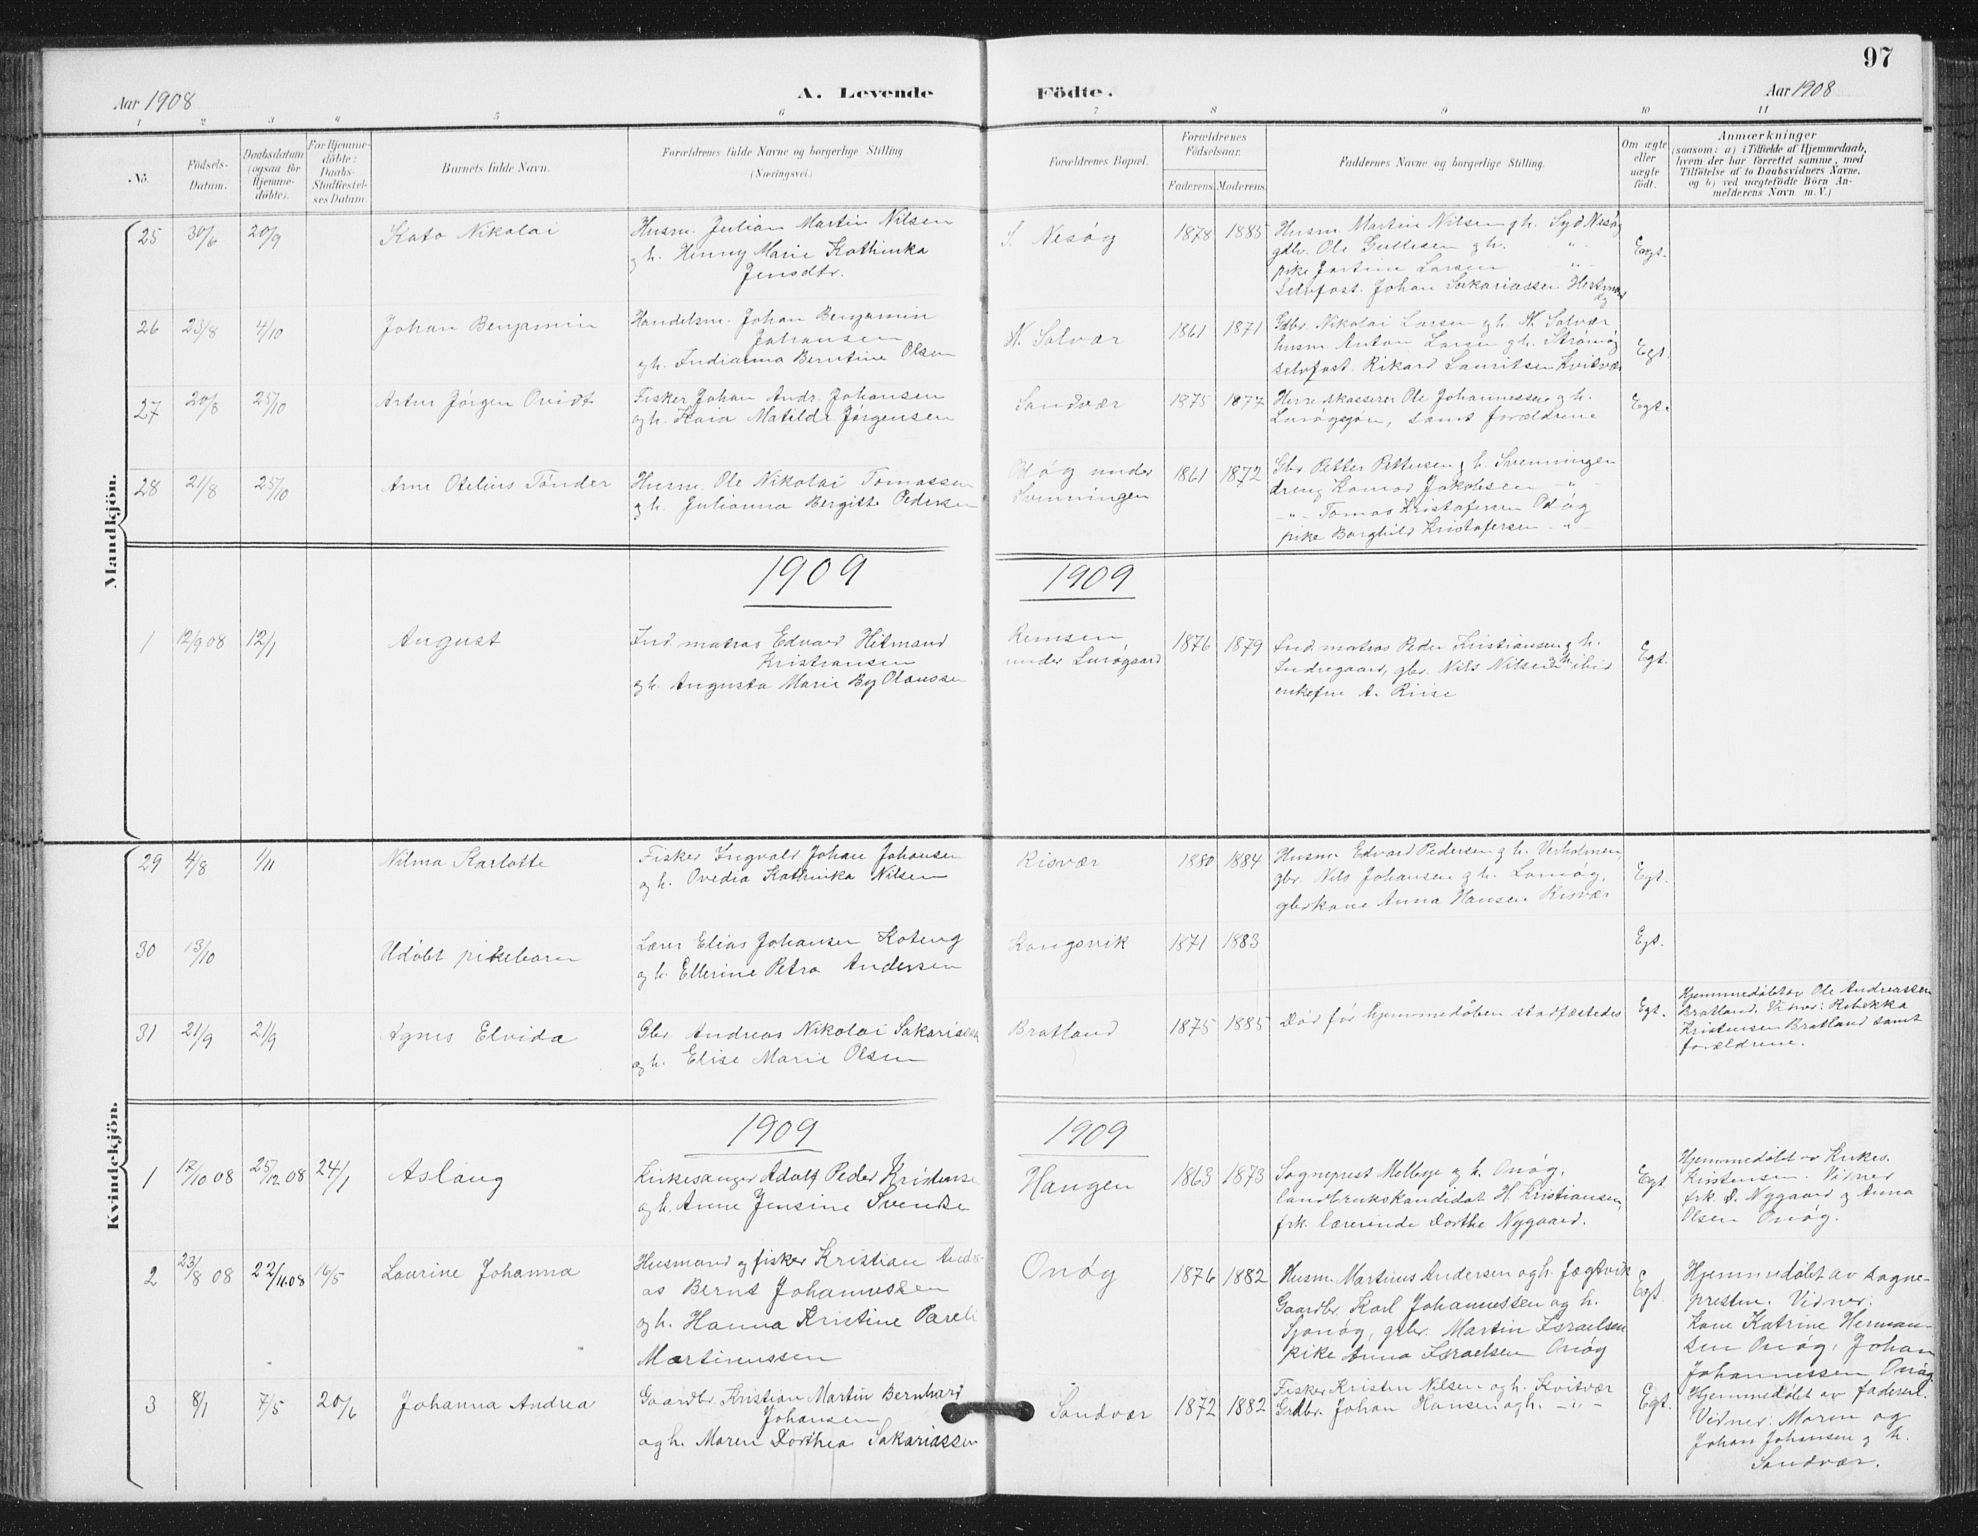 97
Aar 1908
A. Levende
Födte.
Aar 1908
1 2 3 4 5 6 7 8 9 10 11
No.
Födsels-
Datum.
Daabsdatum
(ogsaa for
Hjemme-
döbte).
For Hjemme-
döbte:
Daabs-
Stadfæstel-
ses Datum.
Barnets fulde Navn.
Forældrenes fulde Navne og borgerlige Stilling
(Næringsvei.)
Forældrenes Bopæl.
Forældrenes
Födselsaar.
Faderens. Moderens.
Faddernes Navne og borgerlige Stilling.
Om ægte
eller
uægte
födt.
Anmærkninger
(saasom: a) i Tilfælde af Hjemmedaab,
hvem der har forrettet samme, med
Tilföielse af to Daabsvidners Navne,
og b) ved uægtefödte Börn An-
melderens Navn m. V.)
Mandkjön.
25 30/6 20/9 Kato Nikolai
Husm. Julian Martin Nilsen
og h. Henny Marie Kathinka
Jensdtr.
S. Nesøy 1878 1885
Husm. Martin Nilsen og h. Syd Nesøy
gdbr. Ole Gullesen og h. -"-
pike Jortine Larsen -"-
selvfost. Johan Sakariassen Hestmon
Egt.
26 23/8 4/10 Johan Benjamin
Handelsm. Johan Benjamin
Johansen
og h. Indianna Berntine Olsen
N. Solvær 1861 1871
Gdbr Nikolai Larsen og h. N. Solvær
husm Anton Larsen og h. Strømøy
selvfost. Rikard Lauritsen Kvitvær
Egt.
27 20/8 25/10 Artur Jørgen Ovidt
Fisker Johan Andr. Johansen
og h. Kaia Matilde Jørgensen
Sandvær 1875 1877
Herredskasserer Ole Johannessen og h.
Lurøgsjøn, samt forældrene
Egt.
28 21/8 25/10 Arne Otelius Tønder
Husm. Ole Nikolai Tomassen
og h. Julianna Bergitte Pedersen
Odøy under
Svenningen
1861 1872
Gbr Petter Pettersen og h. Svenningen
dreng Konrad Jakobsen -"-
-"- Tomas Kristofersen Odøy
pike Borghild Kristofersen -"-
1909
1909
1 12/9 08 12/1 August
Ind. matros Edvard Hitmand
Kristiansen
og h. Augusta Marie By Olaussen
Remsen
under Lurøgaard
1876 1879
Ind. matros Peder Kristiansen og h.
Indregaard, gbr. Nils Nilsen og h. ibid
enkefru A. Riise
Egt.
Kvindekjön.
29 4/8 1/11 Nilma Karlotte
Fisker Ingvald Johan Johansen
og h. Ovedia Kathinka Nilsen
Risvær 1880 1884
Husm. Edvard Pedersen og h. Verholmen,
gbr. Nils Johansen og h. Lamøy,
gbrkone Anna Hansen Risvær
Egt.
30 13/10 Udøbt pikebarn
Lærer Elias Johansen Koteng
og h. Ellerine Petra Andersen
Kongsvik 1871 1883
Egt.
31 21/9 21/9 Agnes Elvida
Gbr Andreas Nikolai Sakariassen
og h. Elise Marie Olsen
Bratland 1875 1885
Død før hjemmedåben stadfæstedes
Egt.
Hjemmedøbt av Ole Andreassen
Bratland. Vidner: Rebekka
Kristensen Bratland samt
forældrene.
1909
1909
1 17/10 08 25/12 08 24/1 Aslaug
Kirkesanger Adolf Peder Kristensen
og h. Anne Jensine Svendse
Haugen 1863 1873
Sogneprest Mellbye og h. Onøy,
landbrukskandidat H. Kristiansen,
frk. lærerinde Dorthe Nygaard.
Egt
Hjemmedøbt av Kirkes.
Kristensen. Vidner
frk. D. Nygaard og Anna
Olsen Onøy.
2 23/8 08 22/11 08 16/5 Laurine Johanna
Husmand og fisker Kristian Andre-
as Bernt Johannessen
og h. Hanna Kristine Pareli
Martinussen
Onøy 1876 1882
Husm. Martinus Andersen og h. Jægtvik
Gaardbr. Karl Johannessen og h.
Sjonøy, gbr. Martin Israelsen
pike Anna Israelsen Onøy
Egt.
Hjemmedøbt av sogne-
presten. Vidner:
Kone Katrine Herman-
sen Onøy, Johan
Johannessen, Onøy
3 8/1 7/5 20/6 Johanna Andrea
Gaardbr. Kristian Martin Bernhard
Johansen
og h. Maren Dorthea Sakariassen
Sandvær 1872 1882
Fisker Kristen Nilsen og h. Kvitvær
Grdbr. Johan Hansen og h. -"-
Egt.
Hjemmedøbt av faderen.
Vidner: Maren og
Johan Johansen og h.
Sandvær.